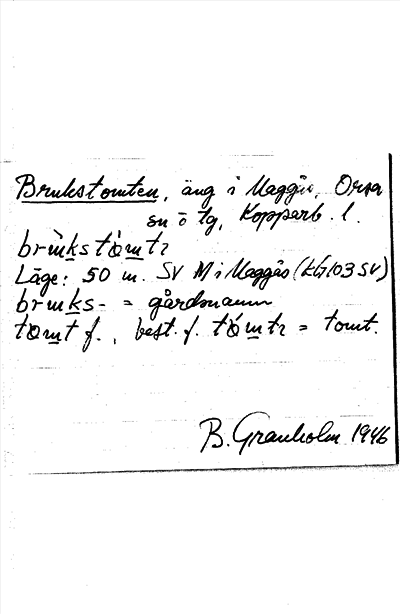 Brukstomten, äng i Maggås, Orsa
sn o tg, Kopparb. l.
brùkstòmtɩ
Läge: 50 m. SV M i Maggås (kb 103 SV)
bruks- = gårdsnamn
tomt f., best. f. tómtɩ = tomt.
B. Granholm 1946